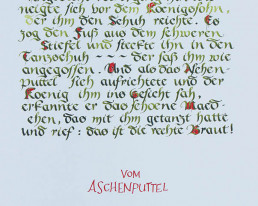 neigte sich vor dem Koenigssohn,
der ihm den Schuh reichte. Es
zog den Fuß aus dem schweren
Stiefel und steckte ihn in den
Tanzschuh ~~~ der saß ihm wie
angegossen. Und als das Aschen-
puttel sich aufrichtete und der
Koenig ihm ins Gesicht sah,
erkannte er das schoene Maed-
chen, das mit ihm getanzt hatte
und rief: das ist die rechte Braut!
VOM
ASCHENPUTTEL